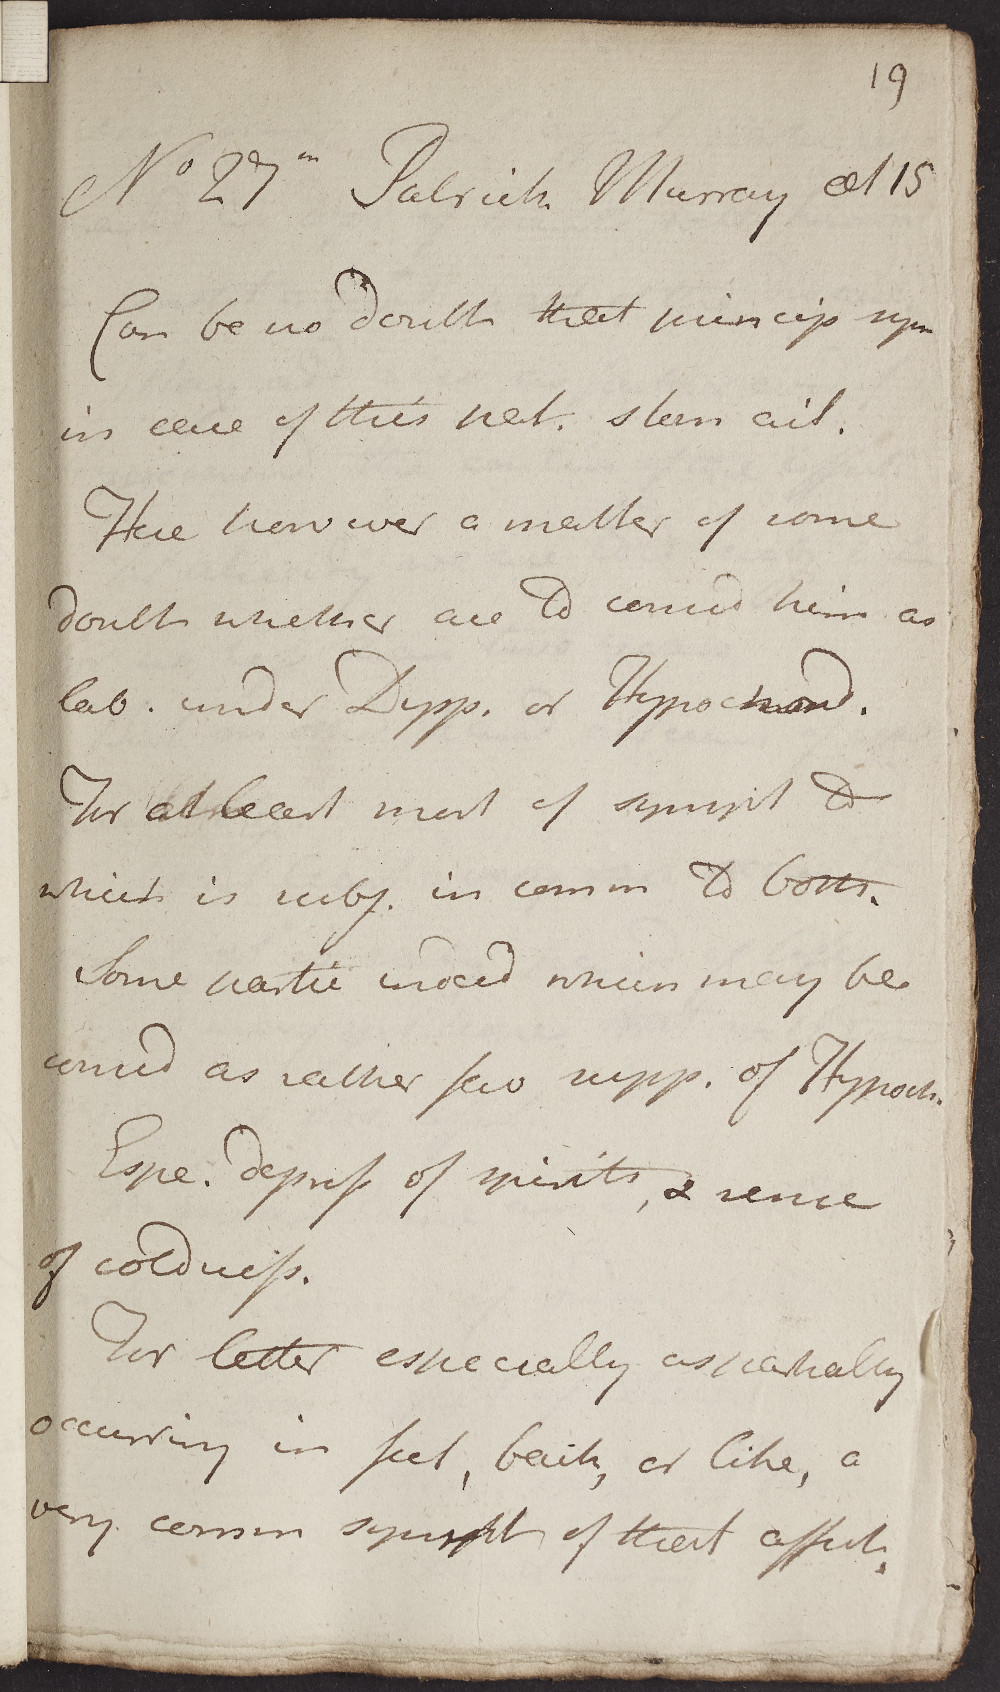 19
No 27m Patrick Murray æt 15
Can be no doubt that princip sym
in case of this pat. stom ail.
Here however a matter of some
doubt whether are to consid him as
lab. under Dysp. or Hypochond.
For at least most of sympt to
which is subj. in comm to both.
Some partic indeed which may be
consid as rather fav supp. of Hypoch.
Espe. depress of spirits, & sense
of coldness.
For latter especially as partially
occurring in feet, back, or like, a
very common sympt of that affect.